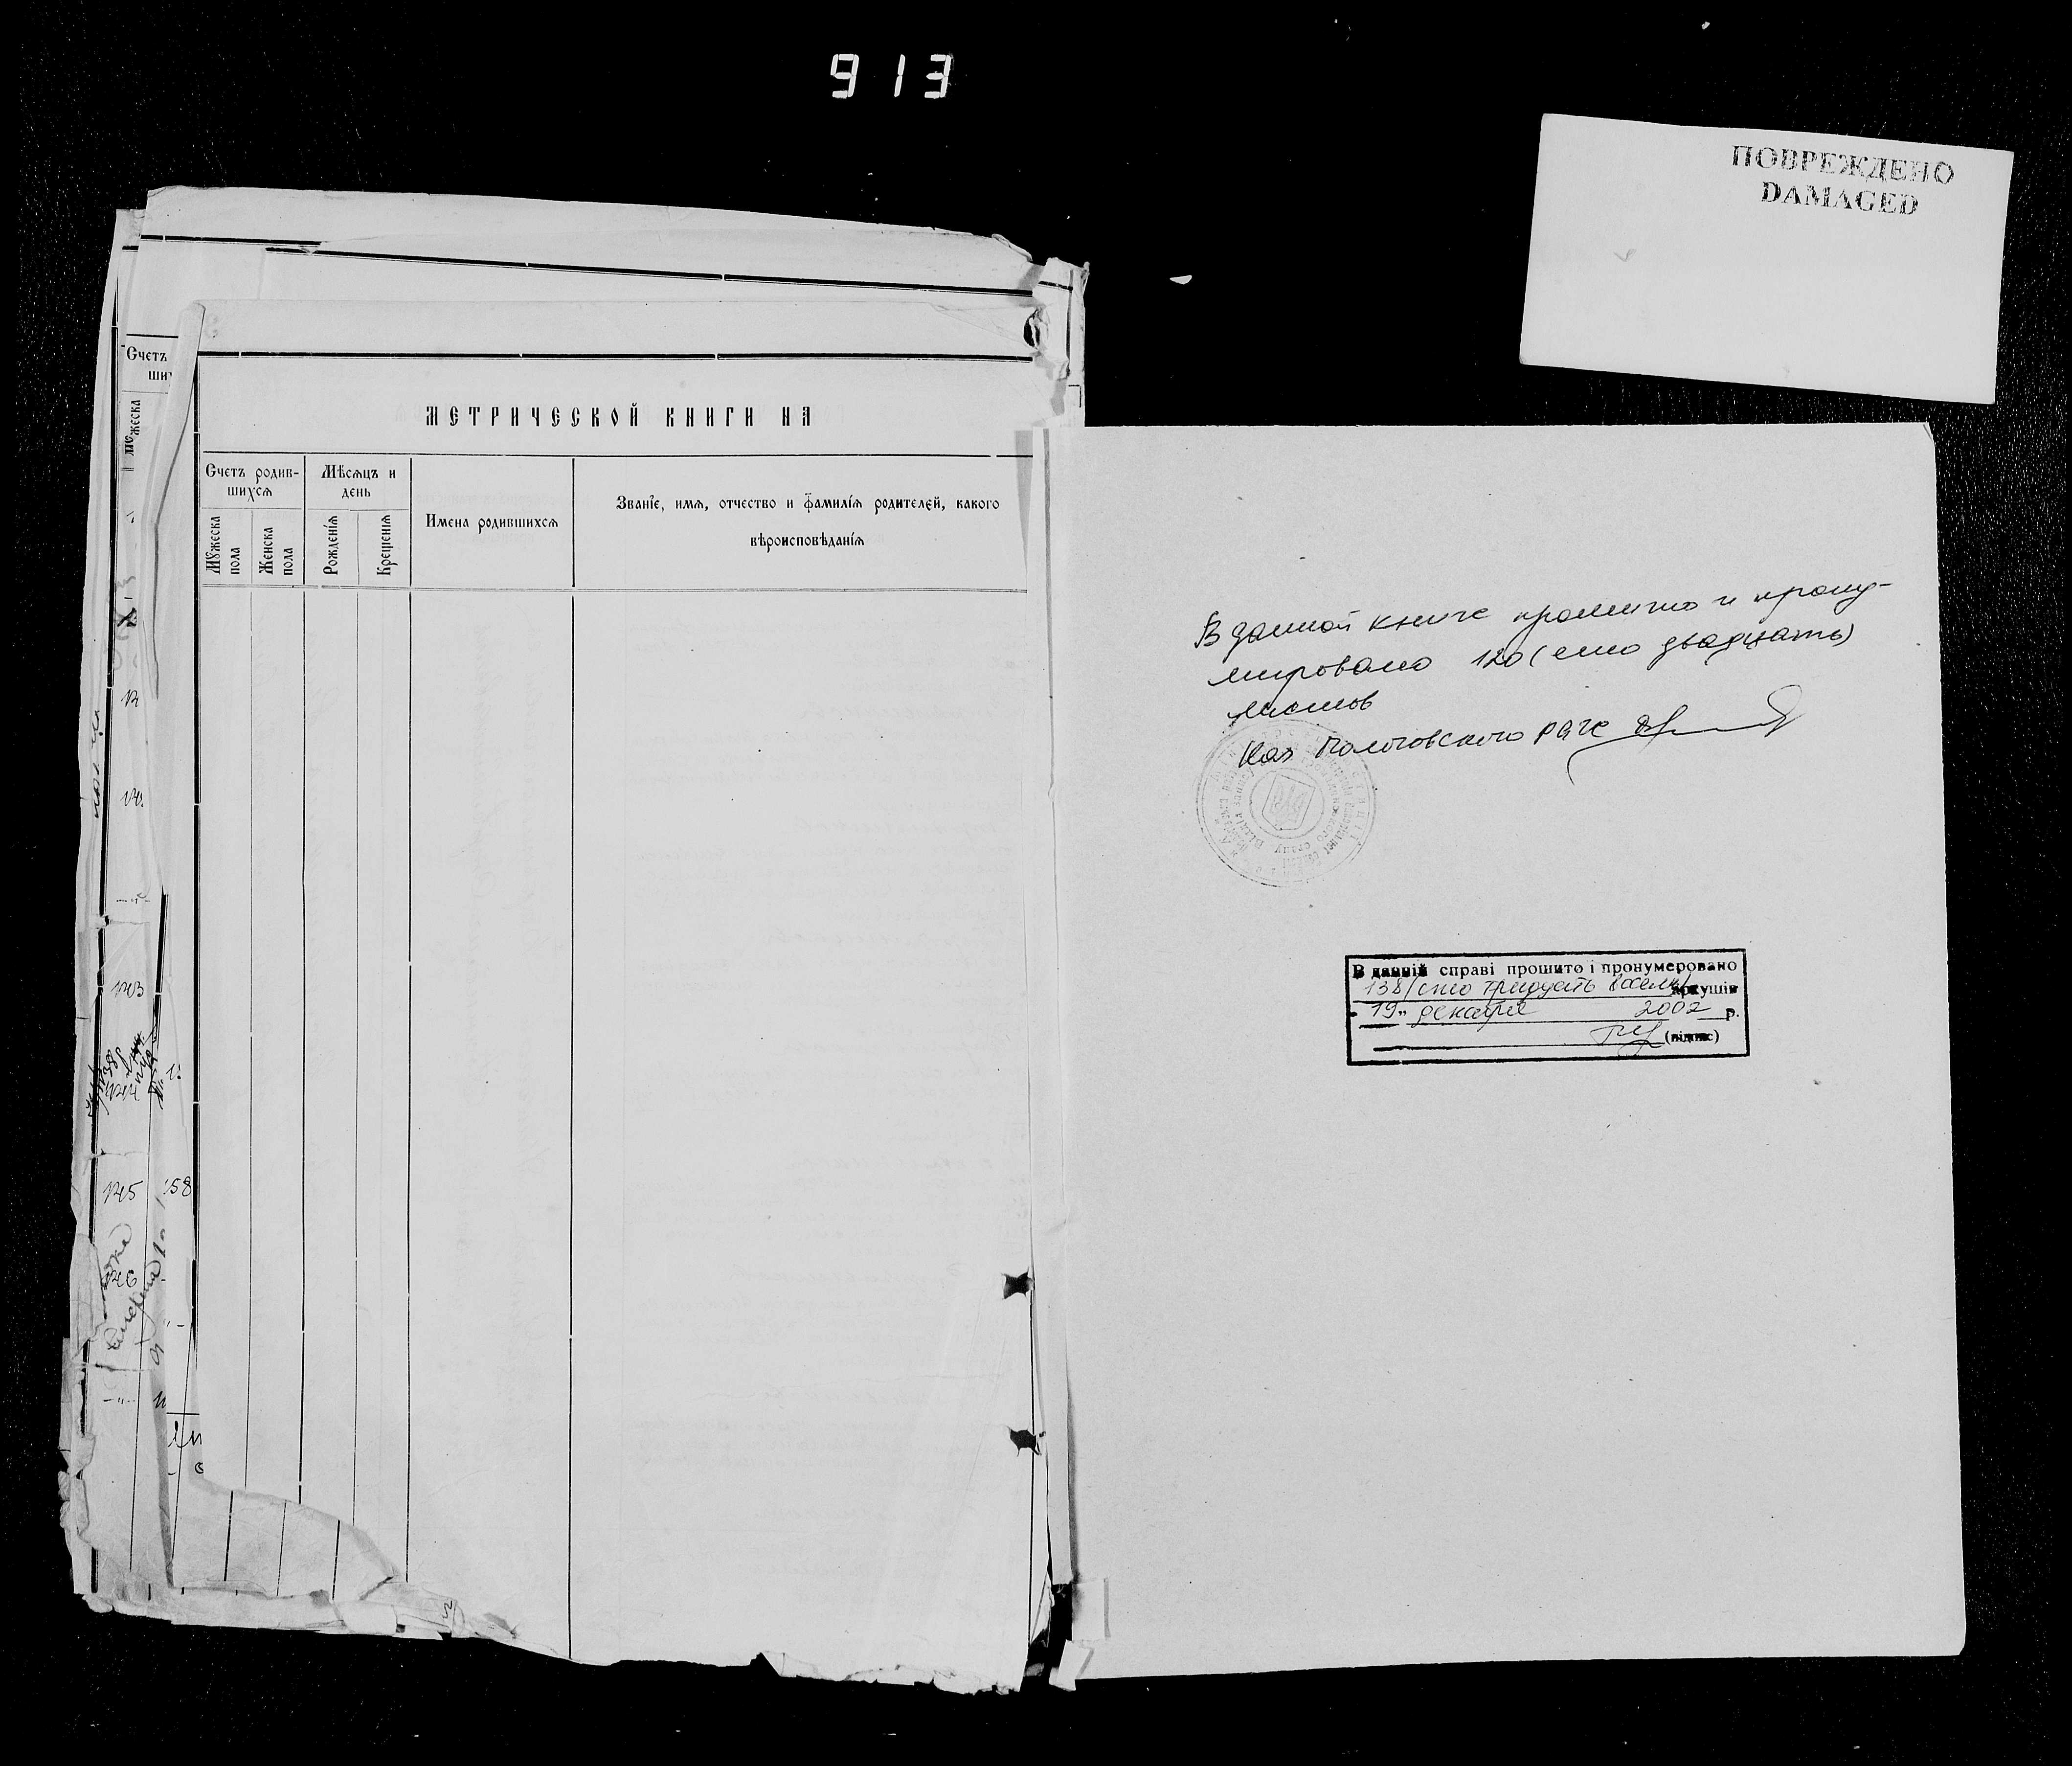 913
ПОВРЕЖДЕНО
DAMAGED
МЕТРИЧЕСКОЙ КНИГИ НА
Счетъ родив-
шихся
Мѣсяцъ и
день
Имена родившихся
Званіе, имя, отчество и фамилія родителей, какого
вѣроисповѣданія
Мꙋжеска
пола
Женска
пола
Рожденія
Крещенія
Счетъ
ших
Мꙋжеска
143
145
58
В данной книге прошито и прону-
мировано 120 (сто двадцать)
листов
Нач Пологовского рагс
В даній справі прошито і пронумеровано
138/сто тридцать восемь/ аркушів
"19" декабря 2002 р.
(підпис)